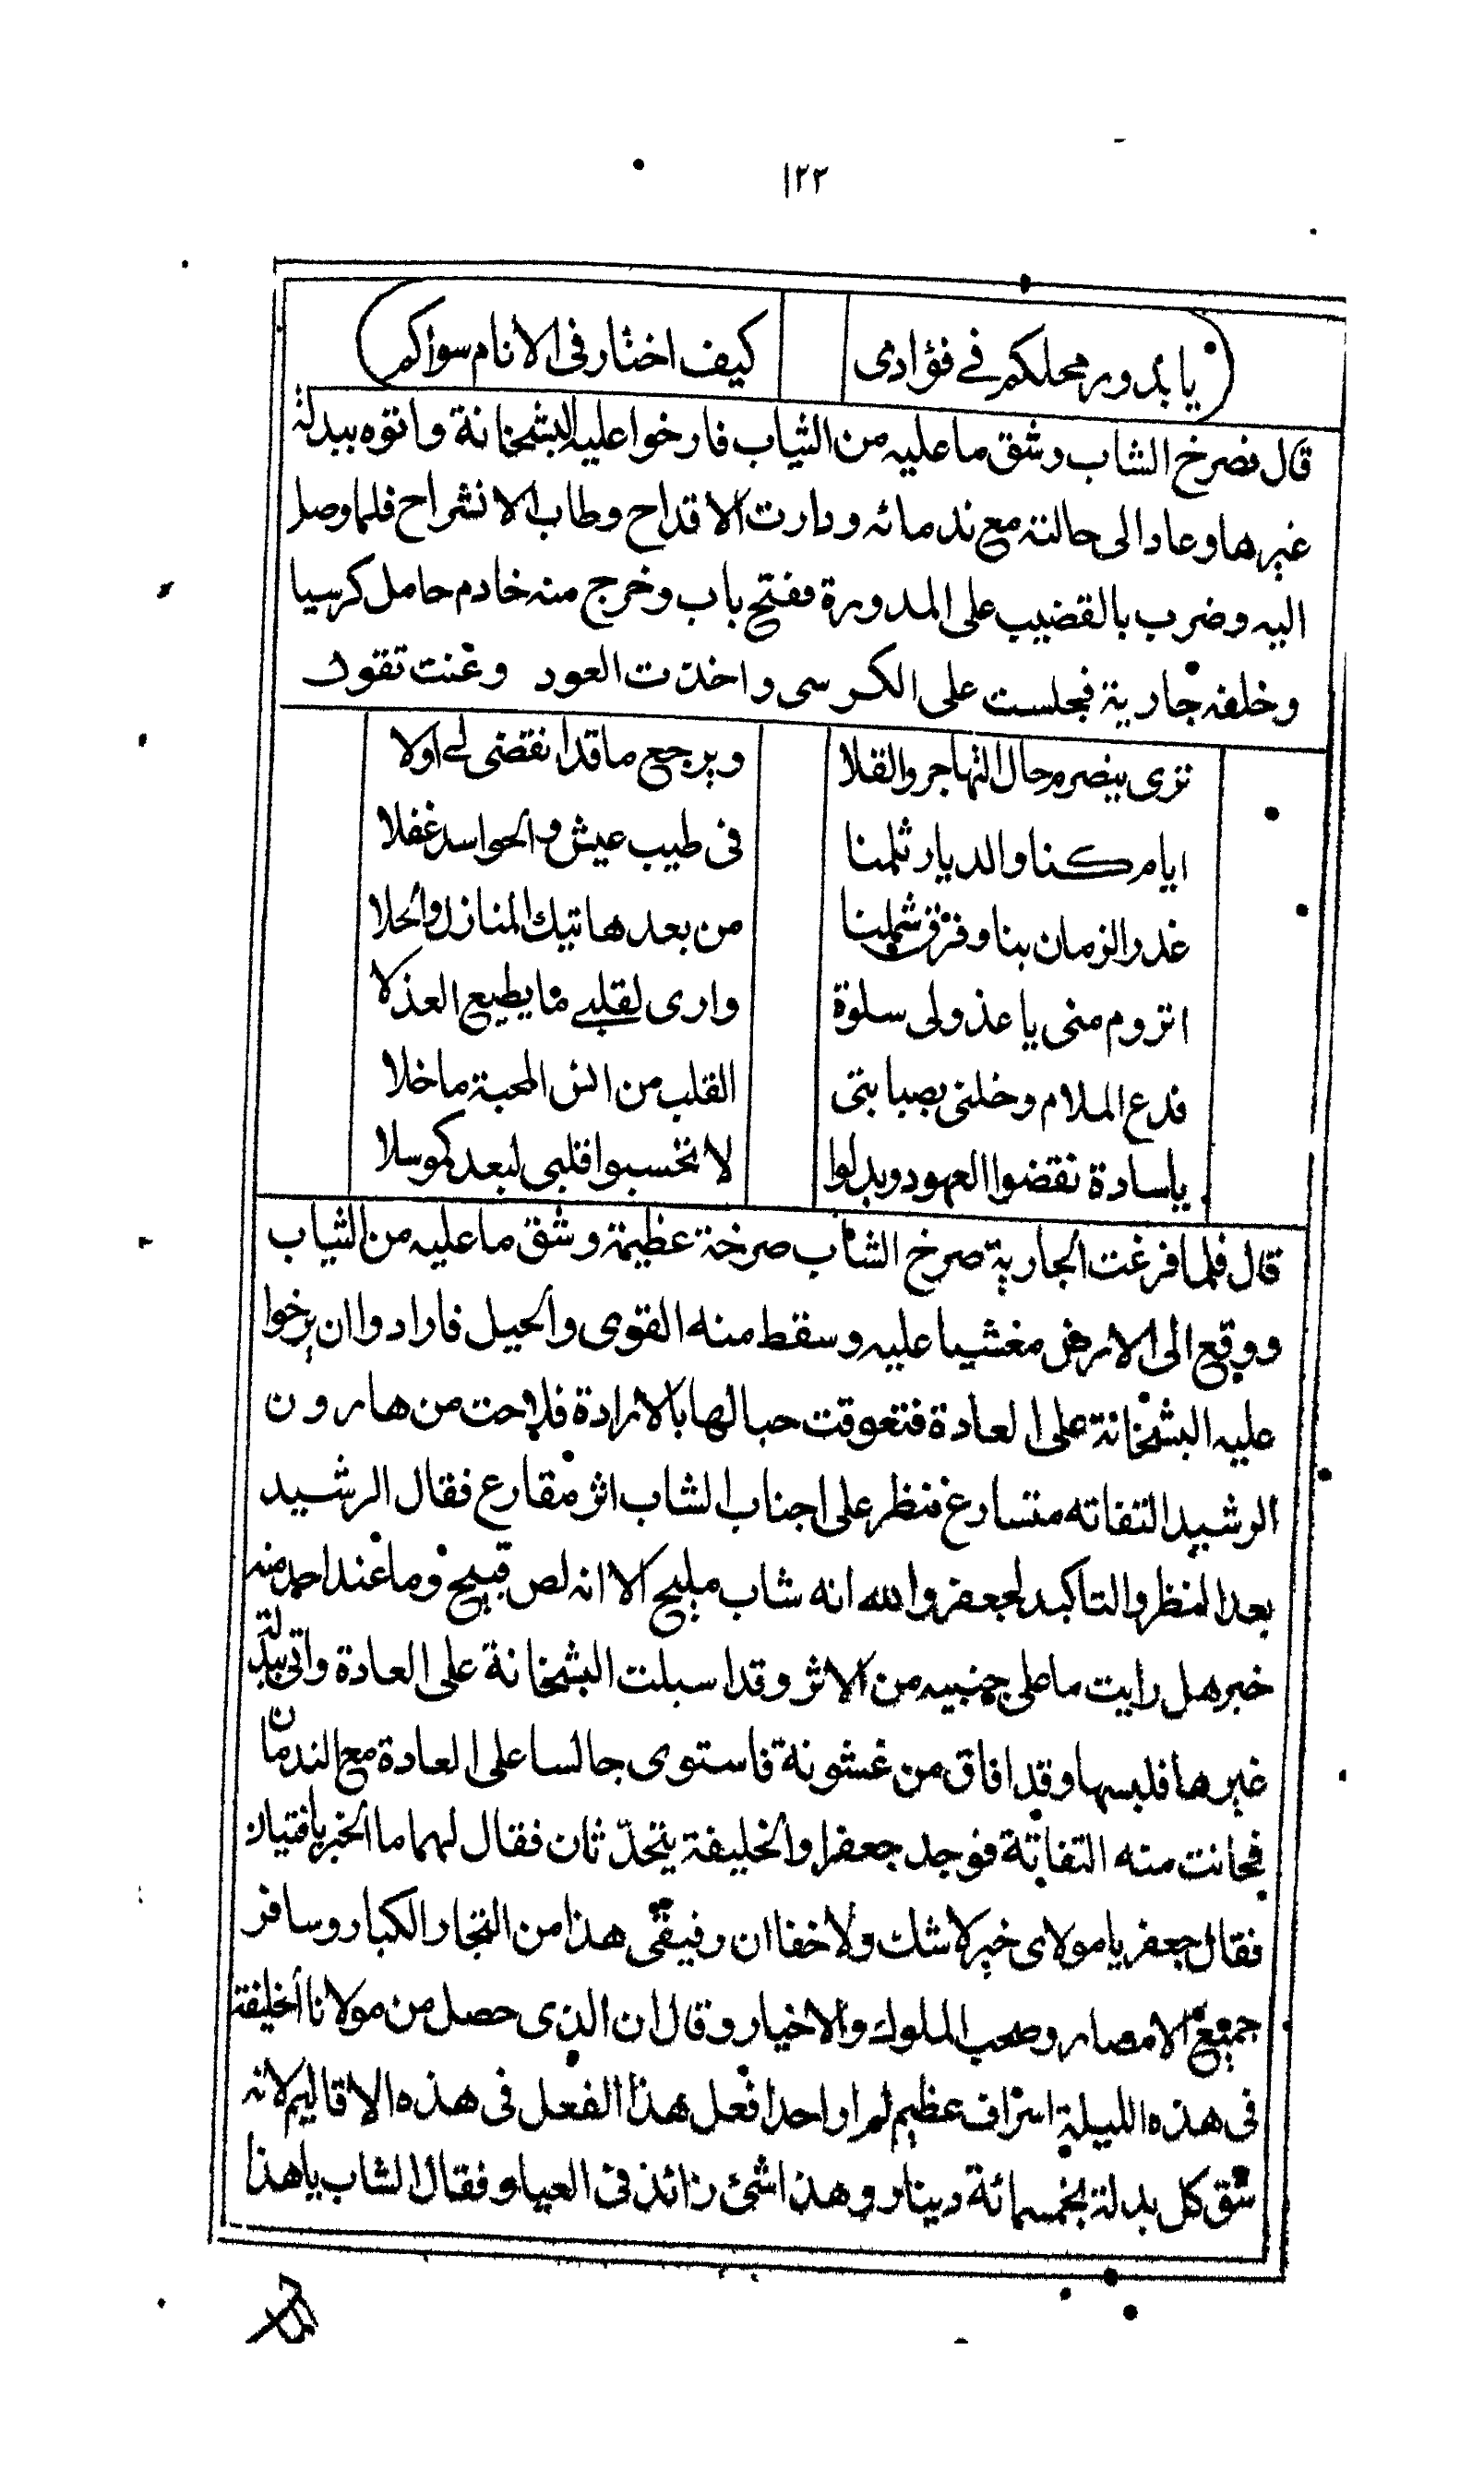 ١٢٢
يا بدور محلكم في فؤادى كيف اختار فى الانام سواكم
قال فصرخ الشاب وشق ما عليه من الثياب فارخوا عليه البشخانة واتوه ببدلة
غيرها وعاد الى حالته مع ندمائه ودارت الاقداح وطاب الانشراح فلما وصل
اليه وضرب بالقضيب على المدورة ففتح باب وخرج منه خادم حامل كرسيا
وخلفه جارية فجلست على الكرسى واخذت العود وغنت تقول
ترى ينصرم حال التهاجر والقلا ويرجع ما قد انقضى لى اولا
ايام كنا والديار تلمنا فى طيب عيش والحواسد غفلا
غدر الزمان بنا وفرق شملنا من بعد هاتيك المنازل والحلا
اتروم منى يا عذولى سلوة وارى لقلبي ما يطيع العذلا
فدع الملام وخلنى بصبابتى القلب من انس المحبة ما خلا
يا سادة نقضوا العهود وبدلوا لا تحسبوا قلبى لبعدكمو سلا
قال فلما فرغت الجارية صرخ الشاب صرخة عظيمة وشق ما عليه من الثياب
ووقع الى الارض مغشيا عليه وسقط منه القوى والحيل فارادوا ان يرخوا
عليه البشخانة على العادة فتعوقت حبالها بالارادة فلاحت من هارون
الرشيد التفاته متسارع فنظر على اجناب الشاب اثر مقارع فقال الرشيد
بعد النظر والتاكيد لجعفر والله انه شاب مليح الا انه لص قبيح وما عند احد منه
خبر هل رايت ما على جنبيه من الاثر وقد اسبلت البشخانة على العادة واتى ببدلة
غيرها فلبسها وقد افاق من غشونة فاستوى جالسا على العادة مع الندمان
فحانت منه التفاتة فوجد جعفرا والخليفة يتحدثان فقال لهما ما الخبر يا فتيان
فقال جعفر يا مولاى خير لا شك ولا خفا ان رفيقى هذا من التجار الكبار وسافر
جميع الامصار وصحب الملوك والاخيار وقال ان الذى حصل من مولانا الخليفة
فى هذه الليلة اسراف عظيم لم ار احدا فعل هذا الفعل فى هذه الاقاليم لانه
شق كل بدلة بخمسمائة دينار وهذا شئ زائد فى العيار فقال الشاب يا هذا